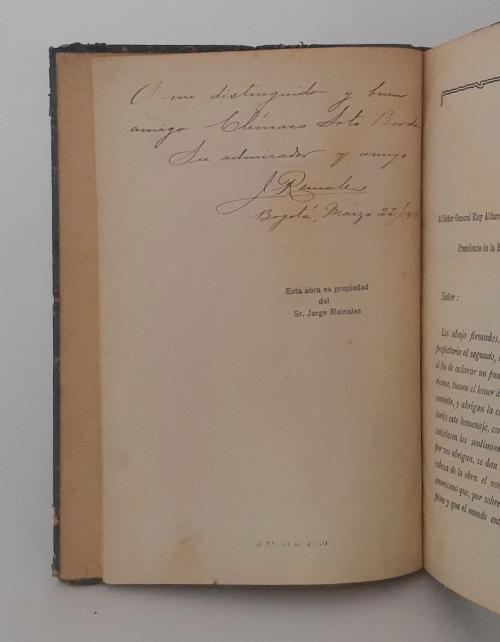 A mi distinguido y buen
amigo Clímaco Soto Borda
Su admirador y amigo
J. Reinales
Bogotá, Marzo 22/
Esta obra es propiedad
del
Sr. Jorge Reinales
Al Señor General Eloy Alfaro
Presidente de la
Señor:
Los abajo firmados,
propietario el segundo,
el fin de aclarar un
tienen el honor
y abrigan la
este homenaje,
satisfacen los
por vos abrigan, se dan
de la obra el
americano que, por sobre
y que el mundo